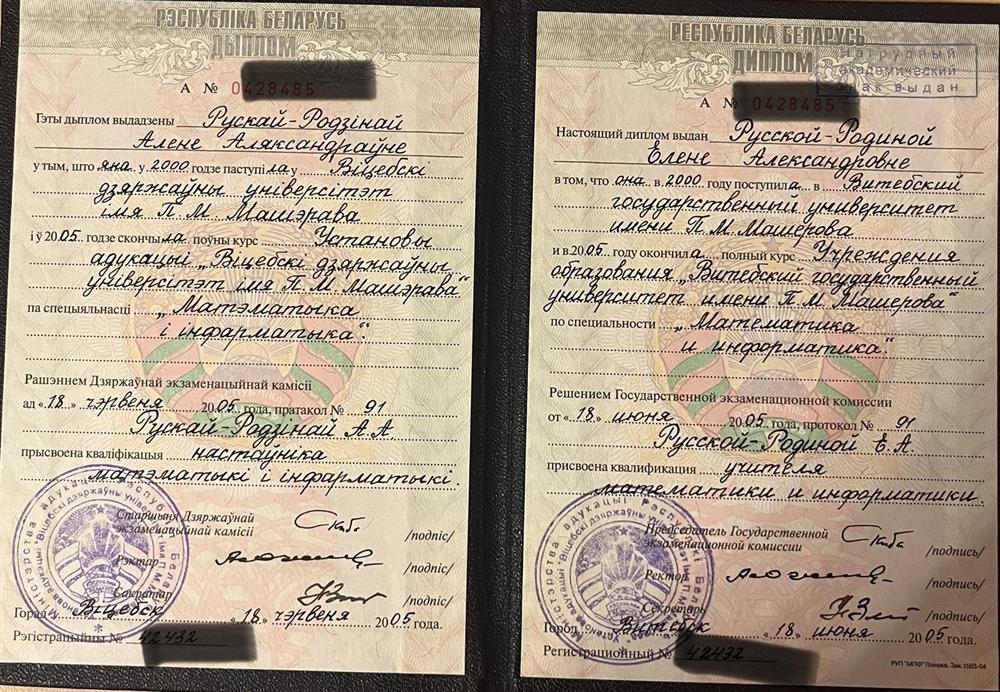 РЭСПУБЛІКА БЕЛАРУСЬ
ДЫПЛОМ
А № 0428485
Гэты дыплом выдадзены Рускай-Родзінай
Алене Аляксандраўне
у тым, што яна у 2000 годзе паступіла у Віцебскі
дзяржаўны універсітэт
імя П.М. Машэрава
і ў 2005 годзе скончыла поўны курс Установы
адукацыі „Віцебскі дзяржаўны
універсітэт імя П.М. Машэрава"
па спецыяльнасці „Матэматыка
і інфарматыка".
Рашэннем Дзяржаўнай экзаменацыйнай камісіі
ад «18» чэрвеня 2005 года, пратакол № 91
Рускай-Родзінай А.А
прысвоена кваліфікацыя настаўніка
матэматыкі і інфарматыкі.
Старшыня Дзяржаўнай
экзаменацыйнай камісіі /подпіс/
Рэктар /подпіс/
Сакратар /подпіс/
Горад Віцебск «18» чэрвеня 2005 года.
Рэгістрацыйны № 42432
РЕСПУБЛИКА БЕЛАРУСЬ
ДИПЛОМ
нагрудный
академический
знак выдан
А № 0428485
Настоящий диплом выдан Русской-Родиной
Елене Александровне
в том, что она в 2000 году поступила в Витебский
государственный университет
имени П.М. Машерова
и в 2005 году окончила полный курс Учреждения
образования „Витебский государственный
университет имени П.М. Машерова"
по специальности „Математика
и информатика".
Решением Государственной экзаменационной комиссии
от «18» июня 2005 года, протокол № 91
Русской-Родиной Е.А.
присвоена квалификация учителя
математики и информатики.
Председатель Государственной
экзаменационной комиссии /подпись/
Ректор /подпись/
Секретарь /подпись/
Город Витебск «18» июня 2005 года.
Регистрационный № 42432
РУП "МПФ" Гознака. Зак.1503-04